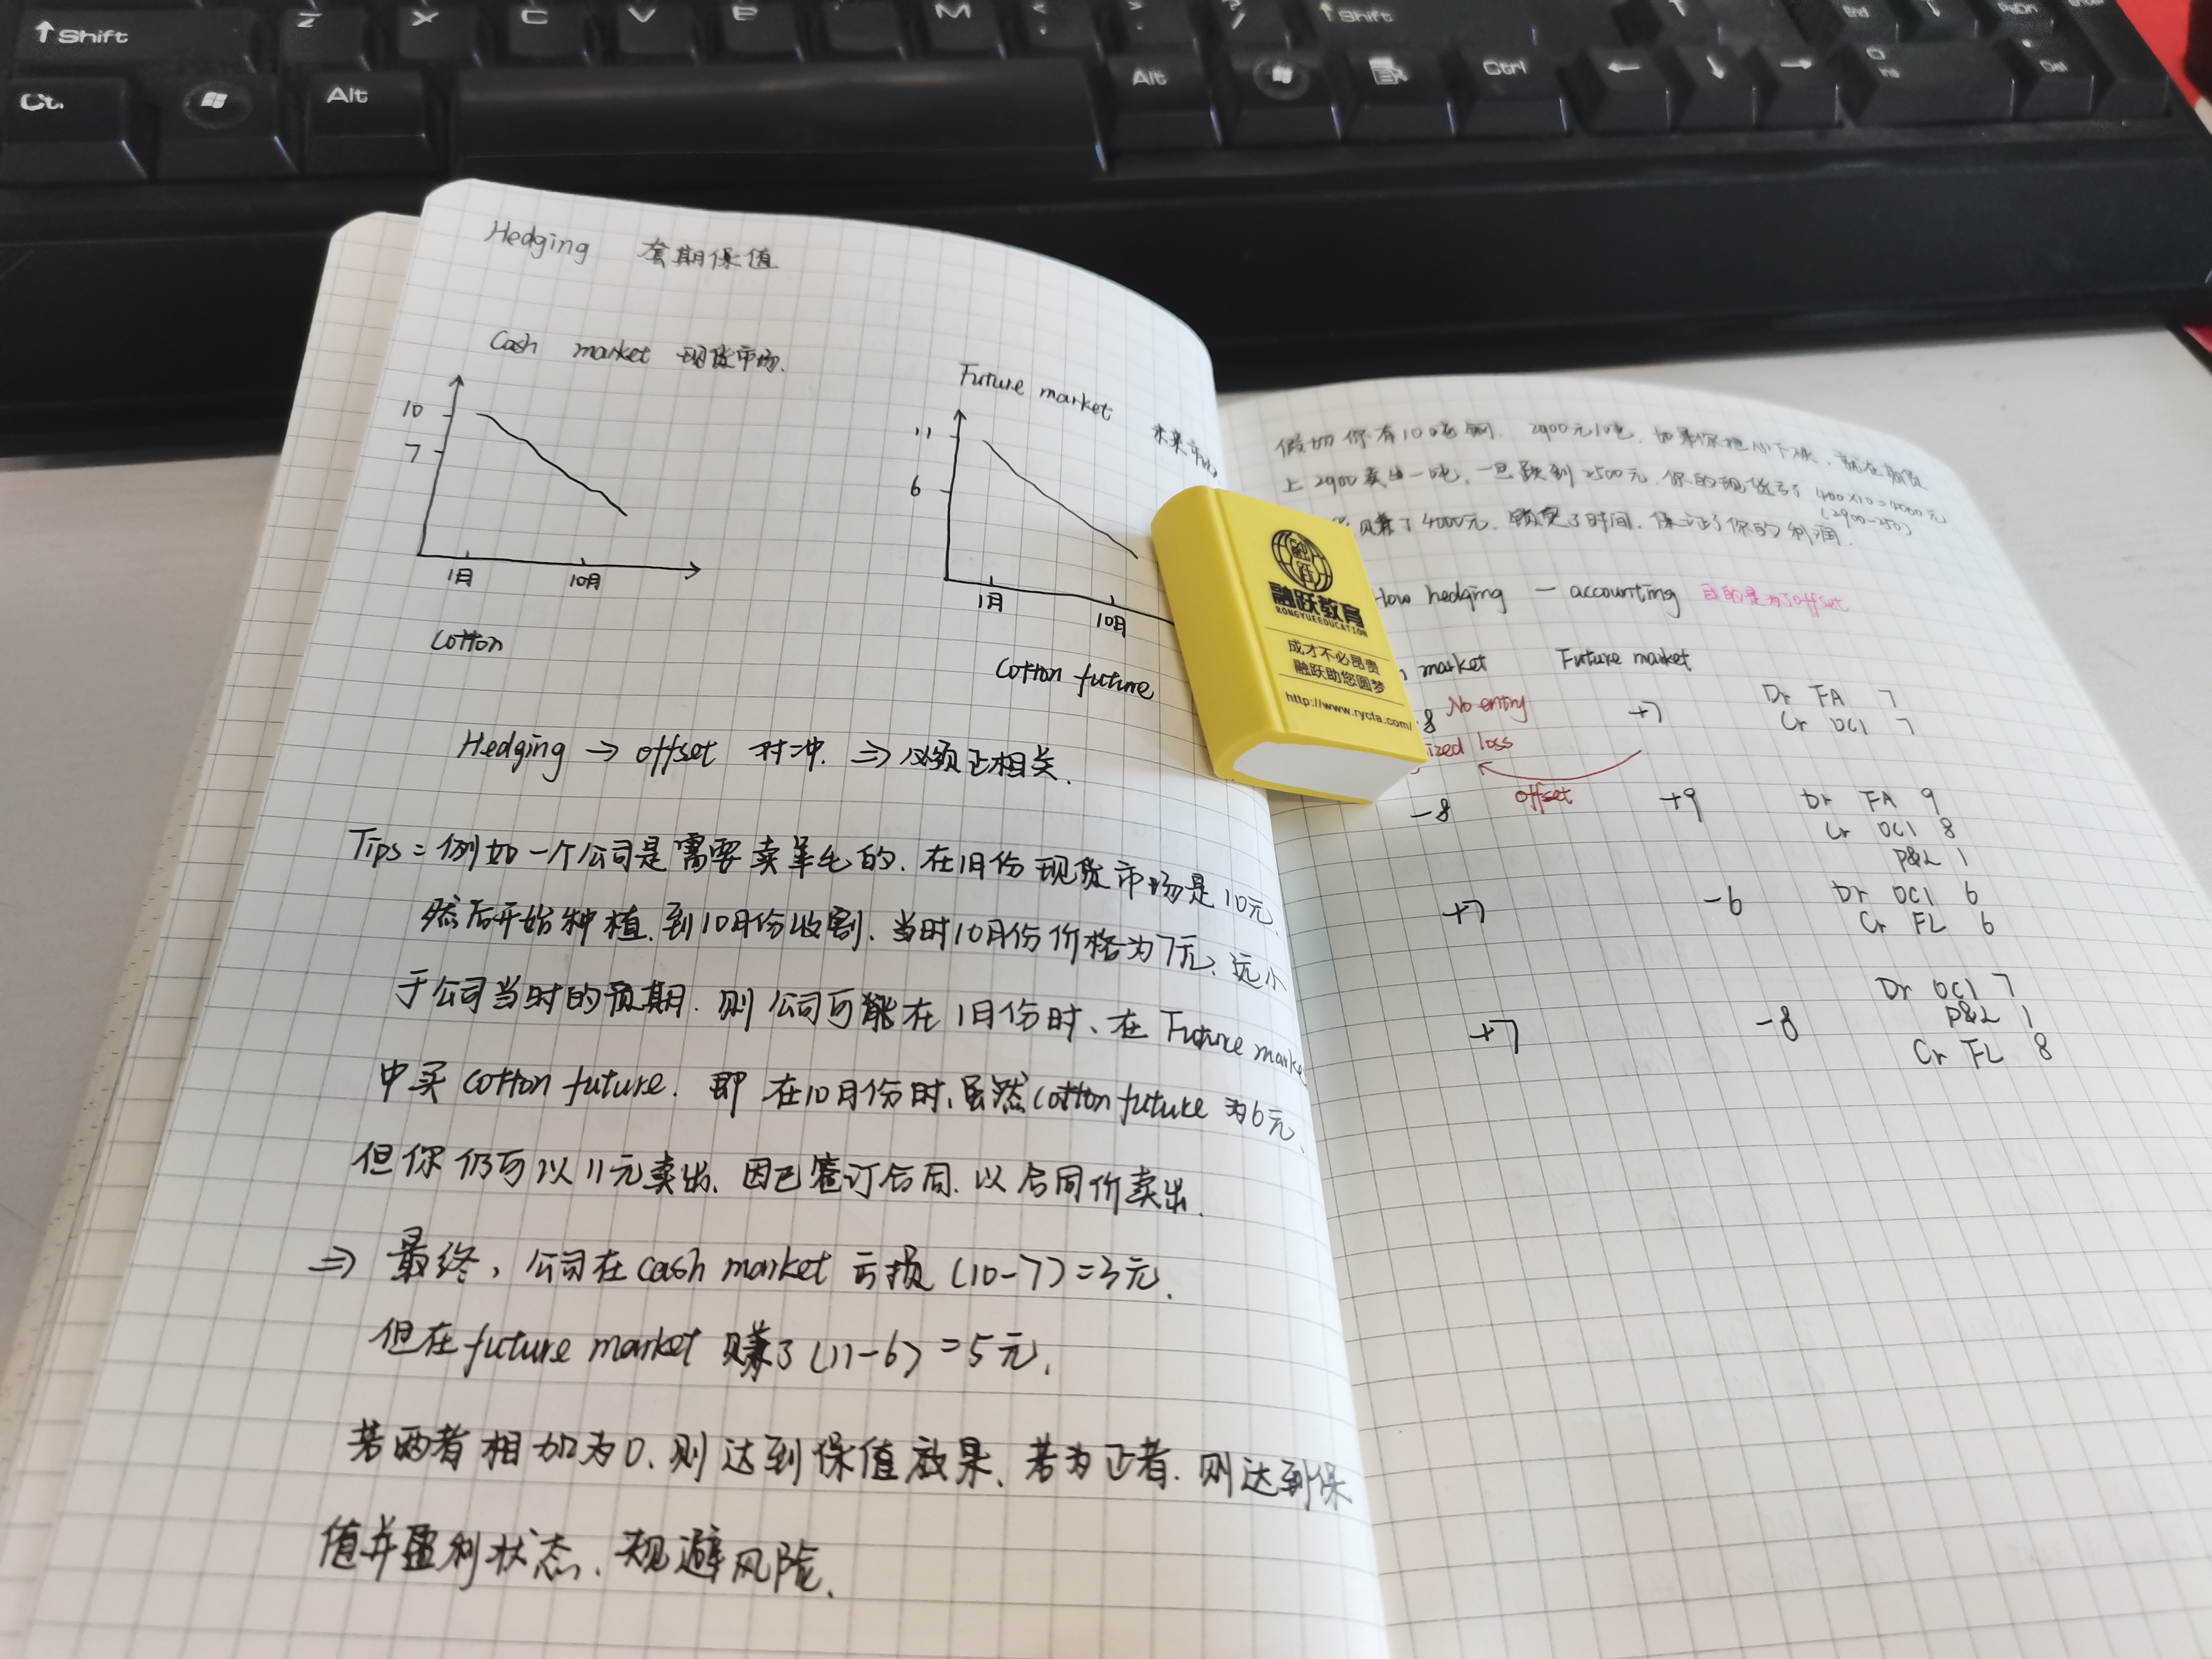 ↑ Shift
Z
X
C
V
B
M
↑ Shift
End
PgDn
Alt
Alt
Ctrl
←
↓
→
Ins
Del
Hedging 套期保值
Cash market 现货市场.
10
7
1月
10月
Cotton
Future market 未来市场
11
6
1月
10月
Cotton future
Hedging → offset 对冲. ⇒ 必须正相关.
Tips = 例如一个公司是需要卖羊毛的. 在1月份现货市场是10元.
然后开始种植. 到10月份收割. 当时10月份价格为7元、远小
于公司当时的预期. 则公司可能在1月份时、在Future marke
中买 cotton future. 即在10月份时、虽然 cotton future 为6元、
但你仍可以11元卖出. 因已签订合同. 以合同价卖出.
⇒ 最终, 公司在 cash market 亏损 (10-7)=3元.
但在 future market 赚了 (11-6) =5元.
若两者相加为0. 则达到保值效果、若为正者. 则达到保
值并盈利状态. 规避风险.
假如你有10吨钢. 2900元1吨. 如果你担心下跌. 就在期货
上2900卖出一吨. 一旦跌到2500元. 你的现货亏了 400×10=4000元
(2900-250)
赚了4000元. 锁定了时间. 保证了你的利润.
How hedging — accounting 目的是为了offset
market Future market
8 No entry +7 Dr FA 7
Cr OCI 7
ized loss
offset
-8 +9 Dr FA 9
Cr OCI 8
P&L 1
+7 -6 Dr OCI 6
Cr FL 6
+7 -8 Dr OCI 7
P&L 1
Cr FL 8
融跃教育
RONGYUEEDUCATION
成才不必昂贵
融跃助您圆梦
http://www.rycfa.com/